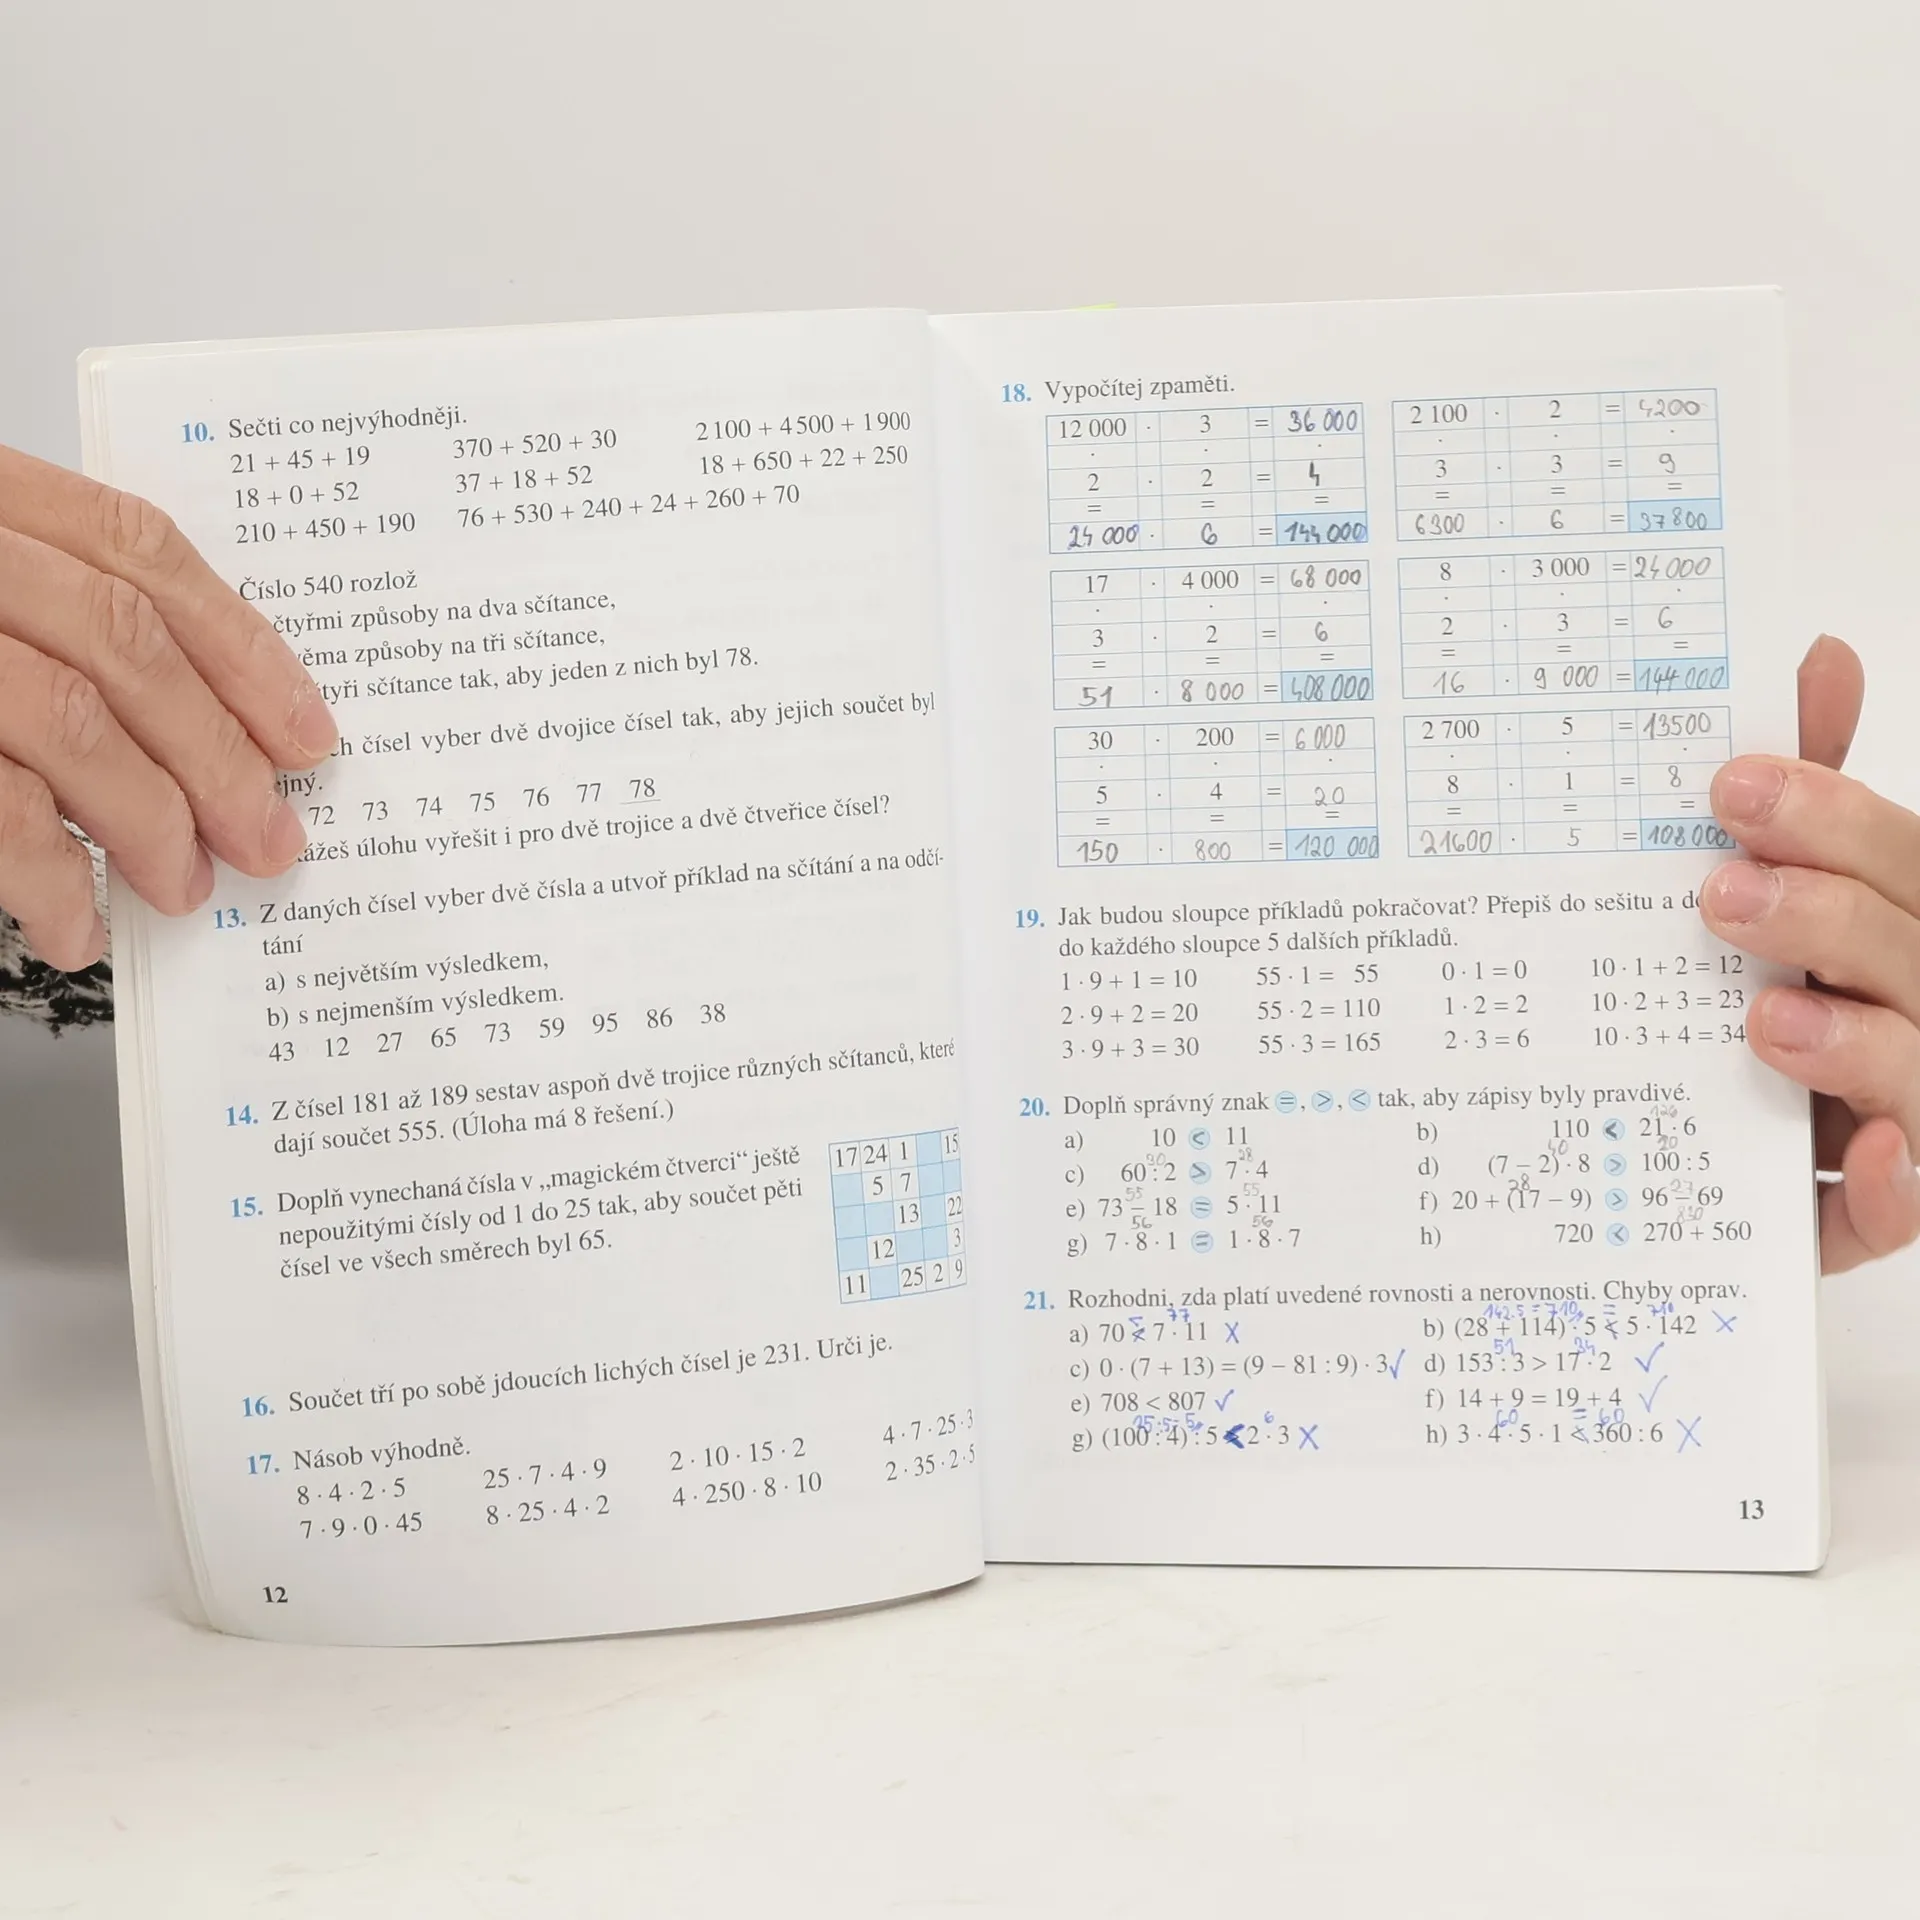 10. Sečti co nejvýhodněji.
21 + 45 + 19 370 + 520 + 30 2 100 + 4 500 + 1 900
18 + 0 + 52 37 + 18 + 52 18 + 650 + 22 + 250
210 + 450 + 190 76 + 530 + 240 + 24 + 260 + 70
Číslo 540 rozlož
čtyřmi způsoby na dva sčítance,
způsoby na tři sčítance,
sčítance tak, aby jeden z nich byl 78.
čísel vyber dvě dvojice čísel tak, aby jejich součet byl
72 73 74 75 76 77 78
úlohu vyřešit i pro dvě trojice a dvě čtveřice čísel?
13. Z daných čísel vyber dvě čísla a utvoř příklad na sčítání a na odčí-
tání
a) s největším výsledkem,
b) s nejmenším výsledkem.
43 12 27 65 73 59 95 86 38
14. Z čísel 181 až 189 sestav aspoň dvě trojice různých sčítanců, které
dají součet 555. (Úloha má 8 řešení.)
15. Doplň vynechaná čísla v „magickém čtverci“ ještě
nepoužitými čísly od 1 do 25 tak, aby součet pěti
čísel ve všech směrech byl 65.
17 24 1 15
5 7
13 22
12 3
11 25 2 9
16. Součet tří po sobě jdoucích lichých čísel je 231. Urči je.
17. Násob výhodně.
8 · 4 · 2 · 5 25 · 7 · 4 · 9 2 · 10 · 15 · 2 4 · 7 · 25 · 3
7 · 9 · 0 · 45 8 · 25 · 4 · 2 4 · 250 · 8 · 10 2 · 35 · 2 · 5
12
18. Vypočítej zpaměti.
12 000 · 3 = 36 000
· · ·
2 · 2 = 4
= = =
24 000 · 6 = 144 000
2 100 · 2 = 4200
· · ·
3 · 3 = 9
= = =
6300 · 6 = 37800
17 · 4 000 = 68 000
· · ·
3 · 2 = 6
= = =
51 · 8 000 = 408 000
8 · 3 000 = 24 000
· · ·
2 · 3 = 6
= = =
16 · 9 000 = 144 000
30 · 200 = 6 000
· · ·
5 · 4 = 20
= = =
150 · 800 = 120 000
2 700 · 5 = 13500
· · ·
8 · 1 = 8
= = =
21600 · 5 = 108 000
19. Jak budou sloupce příkladů pokračovat? Přepiš do sešitu a
do každého sloupce 5 dalších příkladů.
1 · 9 + 1 = 10 55 · 1 = 55 0 · 1 = 0 10 · 1 + 2 = 12
2 · 9 + 2 = 20 55 · 2 = 110 1 · 2 = 2 10 · 2 + 3 = 23
3 · 9 + 3 = 30 55 · 3 = 165 2 · 3 = 6 10 · 3 + 4 = 34
20. Doplň správný znak =, >, < tak, aby zápisy byly pravdivé.
126
a) 10 < 11 b) 110 < 21 · 6
30 28 40 20
c) 60 : 2 > 7 · 4 d) (7 – 2) · 8 > 100 : 5
55 55 28 27
e) 73 – 18 = 5 · 11 f) 20 + (17 – 9) > 96 – 69
56 56 830
g) 7 · 8 · 1 = 1 · 8 · 7 h) 720 < 270 + 560
21. Rozhodni, zda platí uvedené rovnosti a nerovnosti. Chyby oprav.
77 142.5 = 710 = 710
a) 70 < 7 · 11 X b) (28 + 114) · 5 < 5 · 142 X
51 34
c) 0 · (7 + 13) = (9 – 81 : 9) · 3 ✓ d) 153 : 3 > 17 · 2 ✓
e) 708 < 807 ✓ f) 14 + 9 = 19 + 4 ✓
25:5=5 6 60 = 60
g) (100 : 4) : 5 < 2 · 3 X h) 3 · 4 · 5 · 1 < 360 : 6 X
13